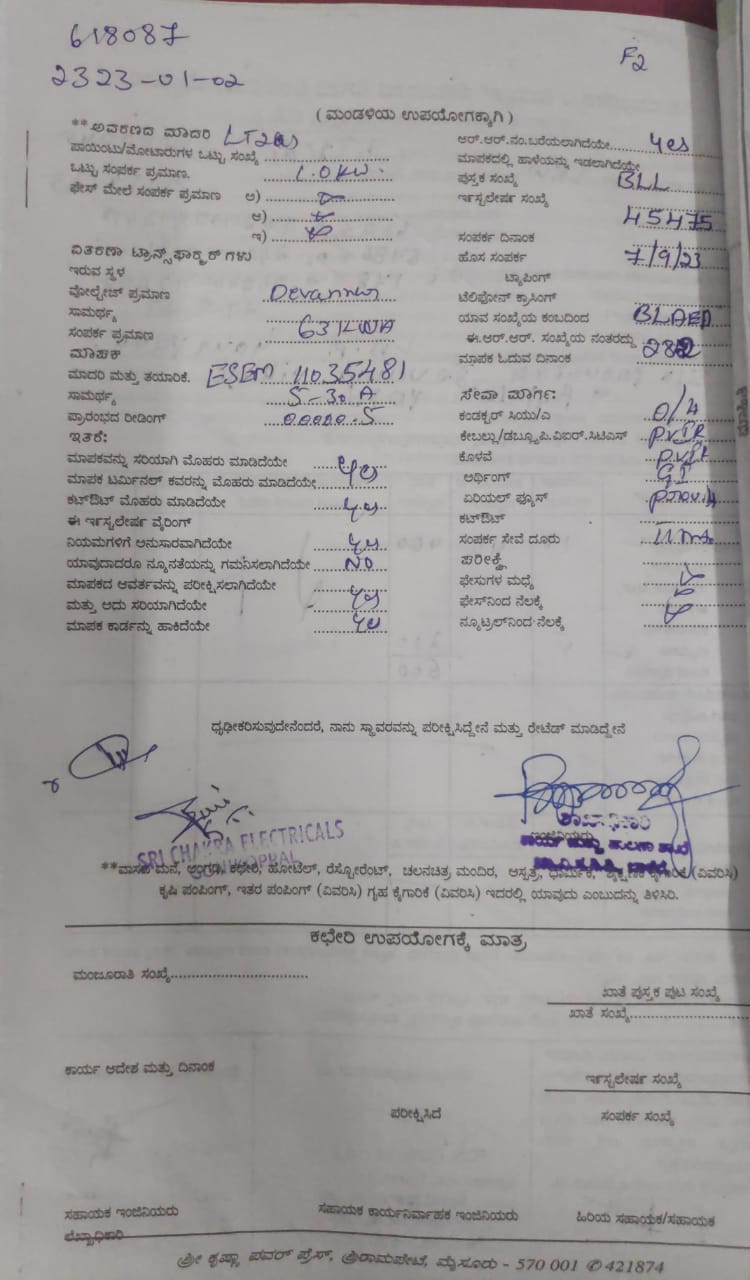 618087
F2
2323-01-02
( ಮಂಡಳಿಯ ಉಪಯೋಗಕ್ಕಾಗಿ )
**ಆವರಣದ ಮಾದರಿ
ಪಾಯಿಂಟು/ಮೋಟಾರುಗಳ ಒಟ್ಟು ಸಂಖ್ಯೆ
ಒಟ್ಟು ಸಂಪರ್ಕ ಪ್ರಮಾಣ. 1.0 KW.
ಫೇಸ್ ಮೇಲೆ ಸಂಪರ್ಕ ಪ್ರಮಾಣ ಅ)
ಆ)
ಇ)
ವಿತರಣಾ ಟ್ರಾನ್ಸ್‌ಫಾರ್ಮರ್ ಗಳು
ಇರುವ ಸ್ಥಳ
ವೋಲ್ಟೇಜ್ ಪ್ರಮಾಣ
ಸಾಮರ್ಥ್ಯ
ಸಂಪರ್ಕ ಪ್ರಮಾಣ
ಮಾಪಕ
ಮಾದರಿ ಮತ್ತು ತಯಾರಿಕೆ. ESEM 11035481
ಸಾಮರ್ಥ್ಯ 5-30 A
ಪ್ರಾರಂಭದ ರೀಡಿಂಗ್ 00000.5
ಇತರೆ:
ಮಾಪಕವನ್ನು ಸರಿಯಾಗಿ ಮೊಹರು ಮಾಡಿದೆಯೇ yes
ಮಾಪಕ ಟರ್ಮಿನಲ್ ಕವರನ್ನು ಮೊಹರು ಮಾಡಿದೆಯೇ
ಕಟ್‌ಔಟ್ ಮೊಹರು ಮಾಡಿದೆಯೇ yes
ಈ ಇನ್‌ಸ್ಟಲೇಷನ್ ವೈರಿಂಗ್
ನಿಯಮಗಳಿಗೆ ಅನುಸಾರವಾಗಿದೆಯೇ yes
ಯಾವುದಾದರೂ ನ್ಯೂನತೆಯನ್ನು ಗಮನಿಸಲಾಗಿದೆಯೇ NO
ಮಾಪಕದ ಆವರ್ತವನ್ನು ಪರೀಕ್ಷಿಸಲಾಗಿದೆಯೇ
ಮತ್ತು ಅದು ಸರಿಯಾಗಿದೆಯೇ yes
ಮಾಪಕ ಕಾರ್ಡನ್ನು ಹಾಕಿದೆಯೇ yes
ಆರ್.ಆರ್.ನಂ.ಬರೆಯಲಾಗಿದೆಯೇ yes
ಮಾಪಕದಲ್ಲಿ ಹಾಳೆಯನ್ನು ಇಡಲಾಗಿದೆಯೇ
ಪುಸ್ತಕ ಸಂಖ್ಯೆ BLL
ಇನ್‌ಸ್ಟಲೇಷನ್ ಸಂಖ್ಯೆ
45475
ಸಂಪರ್ಕ ದಿನಾಂಕ
ಹೊಸ ಸಂಪರ್ಕ 7/9/23
ಟ್ಯಾಪಿಂಗ್
ಟೆಲಿಫೋನ್ ಕ್ರಾಸಿಂಗ್
ಯಾವ ಸಂಖ್ಯೆಯ ಕಂಬದಿಂದ
ಈ.ಆರ್.ಆರ್. ಸಂಖ್ಯೆಯ ನಂತರದ್ದು
ಮಾಪಕ ಓದುವ ದಿನಾಂಕ
ಸೇವಾ ಮಾರ್ಗ:
ಕಂಡಕ್ಟರ್ ಸಿಯು/ಎ
ಕೇಬಲ್ಲು/ಡಬ್ಲ್ಯೂಪಿ.ವಿಐಆರ್.ಸಿಟಿಎಸ್
ಕೊಳವೆ
ಅರ್ಥಿಂಗ್ GI
ಏರಿಯಲ್ ಫ್ಯೂಸ್
ಕಟ್‌ಔಟ್
ಸಂಪರ್ಕ ಸೇವೆ ದೂರು
ಪರೀಕ್ಷೆ
ಫೇಸುಗಳ ಮಧ್ಯೆ
ಫೇಸ್‌ನಿಂದ ನೆಲಕ್ಕೆ
ನ್ಯೂಟ್ರಲ್‌ನಿಂದ ನೆಲಕ್ಕೆ
ಧೃಢೀಕರಿಸುವುದೇನೆಂದರೆ, ನಾನು ಸ್ಥಾವರವನ್ನು ಪರೀಕ್ಷಿಸಿದ್ದೇನೆ ಮತ್ತು ರೇಟೆಡ್ ಮಾಡಿದ್ದೇನೆ
ಇಂಜಿನಿಯರು
SRI CHAKRA ELECTRICALS
**ವಾಸದ ಮನೆ, ಅಂಗಡಿ, ಕಛೇರಿ, ಹೋಟೆಲ್, ರೆಸ್ಟೋರೆಂಟ್, ಚಲನಚಿತ್ರ ಮಂದಿರ, ಆಸ್ಪತ್ರೆ, ಧಾರ್ಮಿಕ, ಶೈಕ್ಷಣಿಕ ಕೈಗಾರಿಕೆ (ವಿವರಿಸಿ)
ಕೃಷಿ ಪಂಪಿಂಗ್, ಇತರ ಪಂಪಿಂಗ್ (ವಿವರಿಸಿ) ಗೃಹ ಕೈಗಾರಿಕೆ (ವಿವರಿಸಿ) ಇದರಲ್ಲಿ ಯಾವುದು ಎಂಬುದನ್ನು ತಿಳಿಸಿರಿ.
ಕಛೇರಿ ಉಪಯೋಗಕ್ಕೆ ಮಾತ್ರ
ಮಂಜೂರಾತಿ ಸಂಖ್ಯೆ
ಖಾತೆ ಪುಸ್ತಕ ಪುಟ ಸಂಖ್ಯೆ
ಖಾತೆ ಸಂಖ್ಯೆ
ಕಾರ್ಯ ಆದೇಶ ಮತ್ತು ದಿನಾಂಕ
ಇನ್‌ಸ್ಟಲೇಷನ್ ಸಂಖ್ಯೆ
ಪರೀಕ್ಷಿಸಿದೆ
ಸಂಪರ್ಕ ಸಂಖ್ಯೆ
ಸಹಾಯಕ ಇಂಜಿನಿಯರು
ಸಹಾಯಕ ಕಾರ್ಯನಿರ್ವಾಹಕ ಇಂಜಿನಿಯರು
ಹಿರಿಯ ಸಹಾಯಕ/ಸಹಾಯಕ
ಲೆಖ್ಖಾಧಿಕಾರಿ
ಶ್ರೀ ಕೃಷ್ಣಾ ಪವರ್ ಪ್ರೆಸ್, ಶ್ರೀರಾಮಪೇಟೆ, ಮೈಸೂರು - 570 001 ✆ 421874